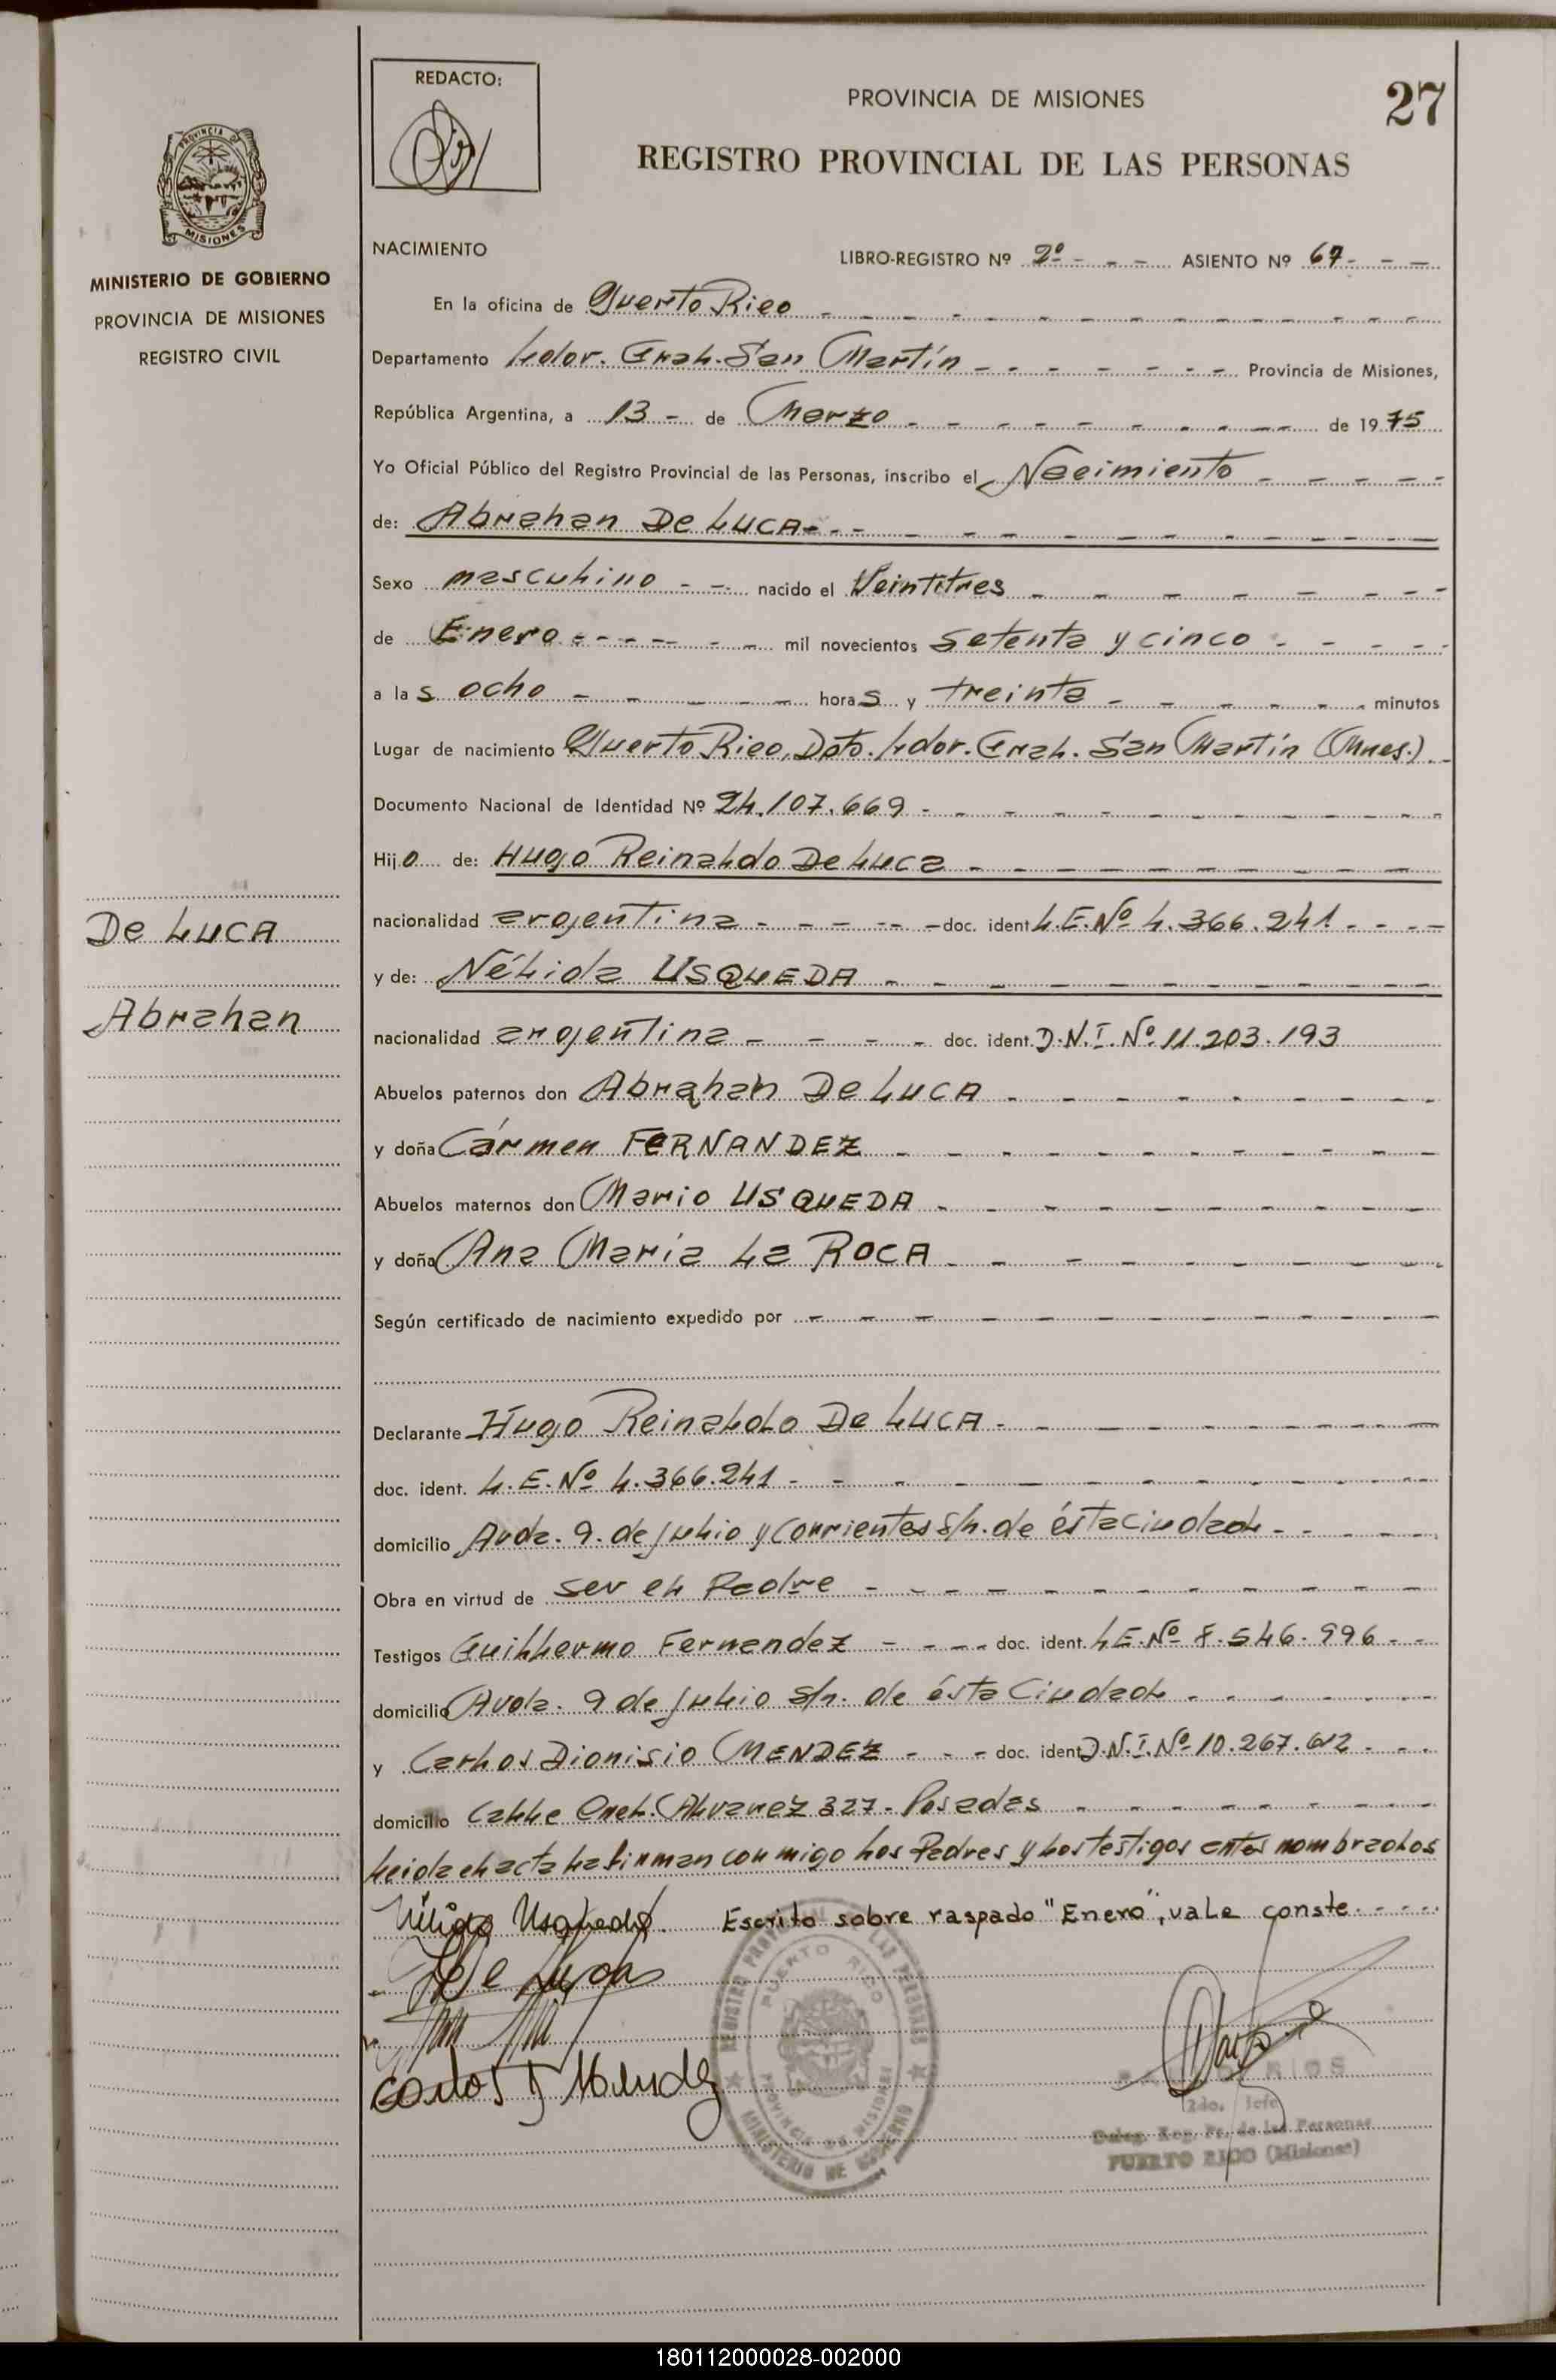 REDACTO:
PROVINCIA DE MISIONES
27
REGISTRO PROVINCIAL DE LAS PERSONAS
PROVINCIA DE
MISIONES
MINISTERIO DE GOBIERNO
PROVINCIA DE MISIONES
REGISTRO CIVIL
NACIMIENTO
LIBRO-REGISTRO Nº 2º - - - ASIENTO Nº 67 - - -
En la oficina de Puerto Rico
Departamento Ldor. Gral. San Martín Provincia de Misiones,
República Argentina, a 13 - de Marzo de 1975
Yo Oficial Público del Registro Provincial de las Personas, inscribo el Nacimiento
de: Abrahan De LUCA
Sexo masculino nacido el Veintitres
de Enero mil novecientos setenta y cinco
a las ocho horas y treinta minutos
Lugar de nacimiento Puerto Rico, Dpto. Ldor. Gral. San Martín (Mnes.)
Documento Nacional de Identidad Nº 24.107.669
Hijo de: Hugo Reinaldo De Luca
nacionalidad argentina doc. ident L.E. Nº 4.366.241
y de: Nélida USQUEDA
nacionalidad argentina doc. ident. D.N.I. Nº 11.203.193
De LUCA
Abrahan
Abuelos paternos don Abrahan De LUCA
y doña Cármen FERNANDEZ
Abuelos maternos don Mario USQUEDA
y doña Ana María La ROCA
Según certificado de nacimiento expedido por
Declarante Hugo Reinaldo De LUCA
doc. ident. L.E. Nº 4.366.241
domicilio Avda. 9. de Julio y Corrientes S/n. de ésta Ciudad
Obra en virtud de ser el Padre
Testigos Guillermo Fernandez doc. ident. L.E. Nº 8.546.996
domicilio Avda. 9 de Julio S/n. de ésta Ciudad
y Carlos Dionisio MENDEZ doc. ident D.N.I. Nº 10.267.612
domicilio Calle Cnel. Alvarez 327 - Posadas
Leida el acta la firman conmigo los Padres y los testigos antes nombrados
Nélida Usqueda. Escrito sobre raspado "Enero", vale conste.
De Luca
Carlos D Mendez
REGISTRO PROVINCIAL DE LAS PERSONAS
PUERTO RICO
PROVINCIA DE MISIONES
MINISTERIO DE GOBIERNO
2do. Jefe
Deleg. Reg. Pr. de las Personas
PUERTO RICO (Misiones)
180112000028-002000